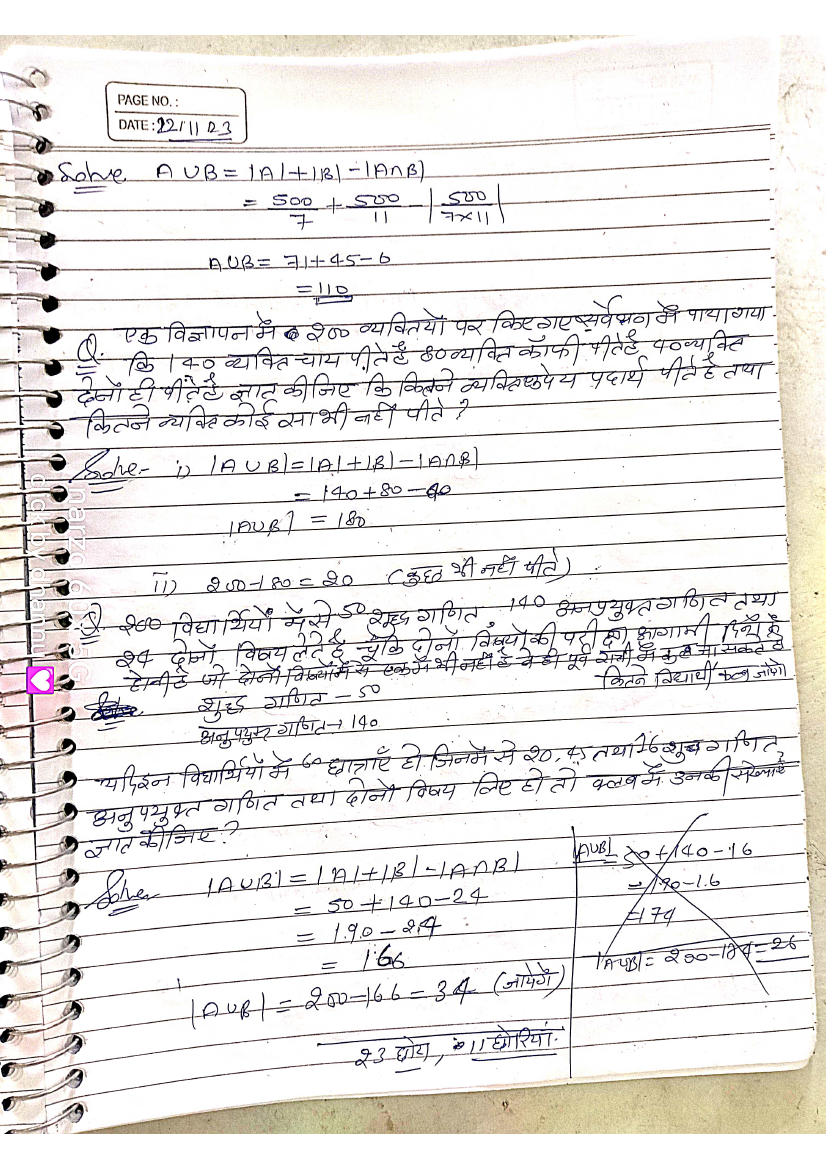 PAGE NO. :
DATE : 22/11/23
Solve A∪B = |A|+|B| - |A∩B|
= 500/7 + 500/11 - |500/7×11|
A∪B = 71+45-6
= 110
Q. एक विज्ञापन में 200 व्यक्तियों पर किए गए सर्वेक्षण में पाया गया
कि 140 व्यक्ति चाय पीते है 80 व्यक्ति कॉफी पीते है 40 व्यक्ति
दोनों ही पीते है ज्ञात कीजिए कि कितने व्यक्ति पेय पदार्थ पीते है तथा
कितने व्यक्ति कोई सा भी नहीं पीते ?
Solve- i) |A∪B| = |A|+|B| - |A∩B|
= 140+80-40
|A∪B| = 180
ii) 200-180 = 20 (कुछ भी नहीं पीते)
Q 200 विद्यार्थियों में से 50 शुद्ध गणित 140 अनुप्रयुक्त गणित तथा
24 दोनों विषय लेते है चूंकि दोनों विषयों की परीक्षा आगामी दिनों में
होनी है जो दोनों विषयों में से एक में भी नहीं है वे ही पूर्व रात्री में जा सकते है
कितने विद्यार्थी जायेंगे
शुद्ध गणित - 50
अनुपयुक्त गणित → 140
यदि इन विद्यार्थियों में 60 छात्राएँ हो जिनमें से 20, 45 तथा 16 शुद्ध गणित,
अनुपयुक्त गणित तथा दोनों विषय लिए हो तो क्लब में उनकी संख्याएं
ज्ञात कीजिए ?
Solve |A∪B| = |A|+|B| - |A∩B|
= 50+140-24
= 190-24
= 166
|A∪B| = 200-166 = 34 (जायेंगे)
23 छोरा, 11 छोरियां.
|A∪B| = 50+140-16
= 190-16
= 174
|A∪B| = 200-174 = 26
narzo 60 5G
click by dhannu